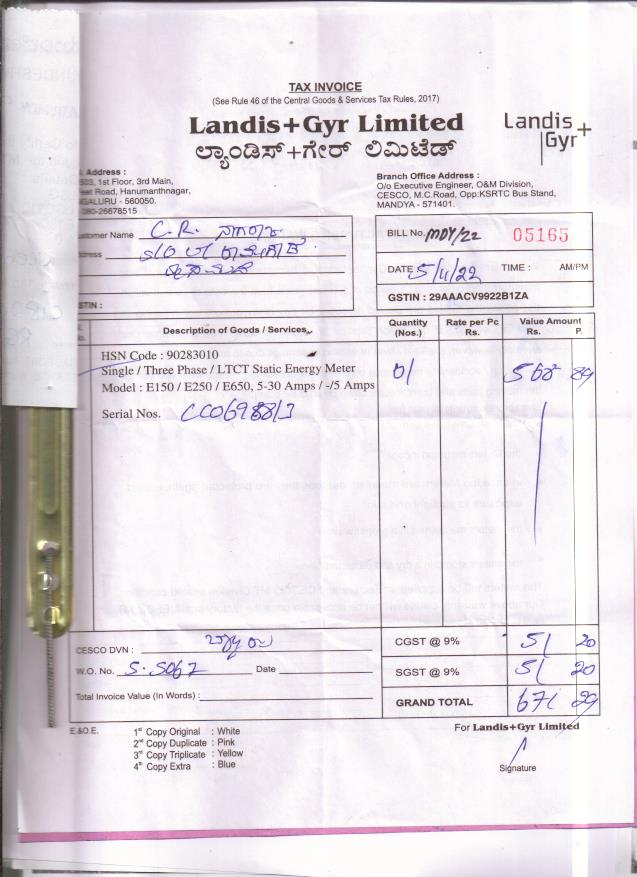 TAX INVOICE
(See Rule 46 of the Central Goods & Services Tax Rules, 2017)
Landis+Gyr Limited
ಲ್ಯಾಂಡಿಸ್+ಗೇರ್ ಲಿಮಿಟೆಡ್
Landis+
Gyr
Address :
1st Floor, 3rd Main,
Road, Hanumanthnagar,
- 560050.
080-26678515
Branch Office Address :
O/o Executive Engineer, O&M Division,
CESCO, M.C.Road, Opp:KSRTC Bus Stand,
MANDYA - 571401.
Customer Name C.R.
BILL No. MDY/22 05165
DATE 5/4/22 TIME : AM/PM
GSTIN : 29AAACV9922B1ZA
Description of Goods / Services
Quantity (Nos.)
Rate per Pc Rs.
Value Amount Rs. P.
HSN Code : 90283010
Single / Three Phase / LTCT Static Energy Meter
Model : E150 / E250 / E650, 5-30 Amps / -/5 Amps
01 568 89
Serial Nos. CC0698813
CESCO DVN :
W.O. No. S-5067 Date
Total Invoice Value (In Words) :
CGST @ 9% 51 20
SGST @ 9% 51 20
GRAND TOTAL 671 29
E.&O.E.
1st Copy Original : White
2nd Copy Duplicate : Pink
3rd Copy Triplicate : Yellow
4th Copy Extra : Blue
For Landis+Gyr Limited
Signature